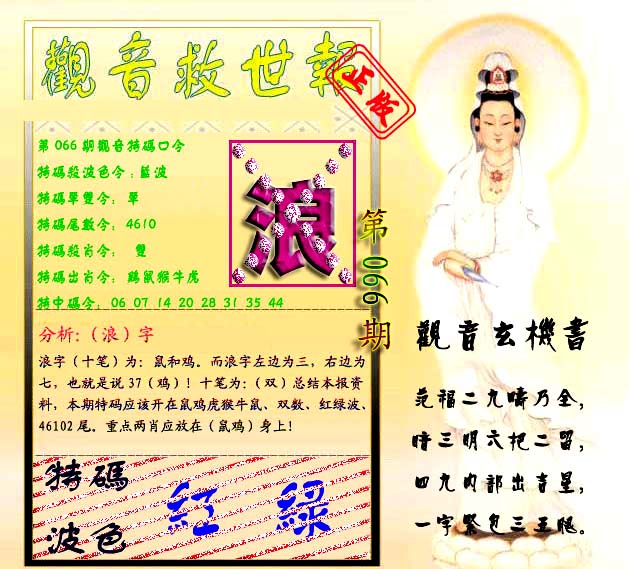 觀音救世報
正版
第066期觀音特碼口令
特碼殺波色令:藍波
特碼單雙令: 單
特碼尾數令: 4610
特碼殺肖令: 雙
特碼出肖令: 鷄鼠猴牛虎
特中碼令: 06 07 14 20 28 31 35 44
浪
第066期
分析:(浪)字
浪字(十笔)为: 鼠和鸡。而浪字左边为三, 右边为
七, 也就是说 37(鸡)! 十笔为:(双)总结本报资
料, 本期特码应该开在鼠鸡虎猴牛鼠、双数、红绿波、
46102 尾。重点两肖应放在(鼠鸡)身上!
特碼
波色
紅 綠
觀音玄機書
范福二九疇乃全,
時三明六把二留,
四九内部出吉星,
一字紫包三五腿。